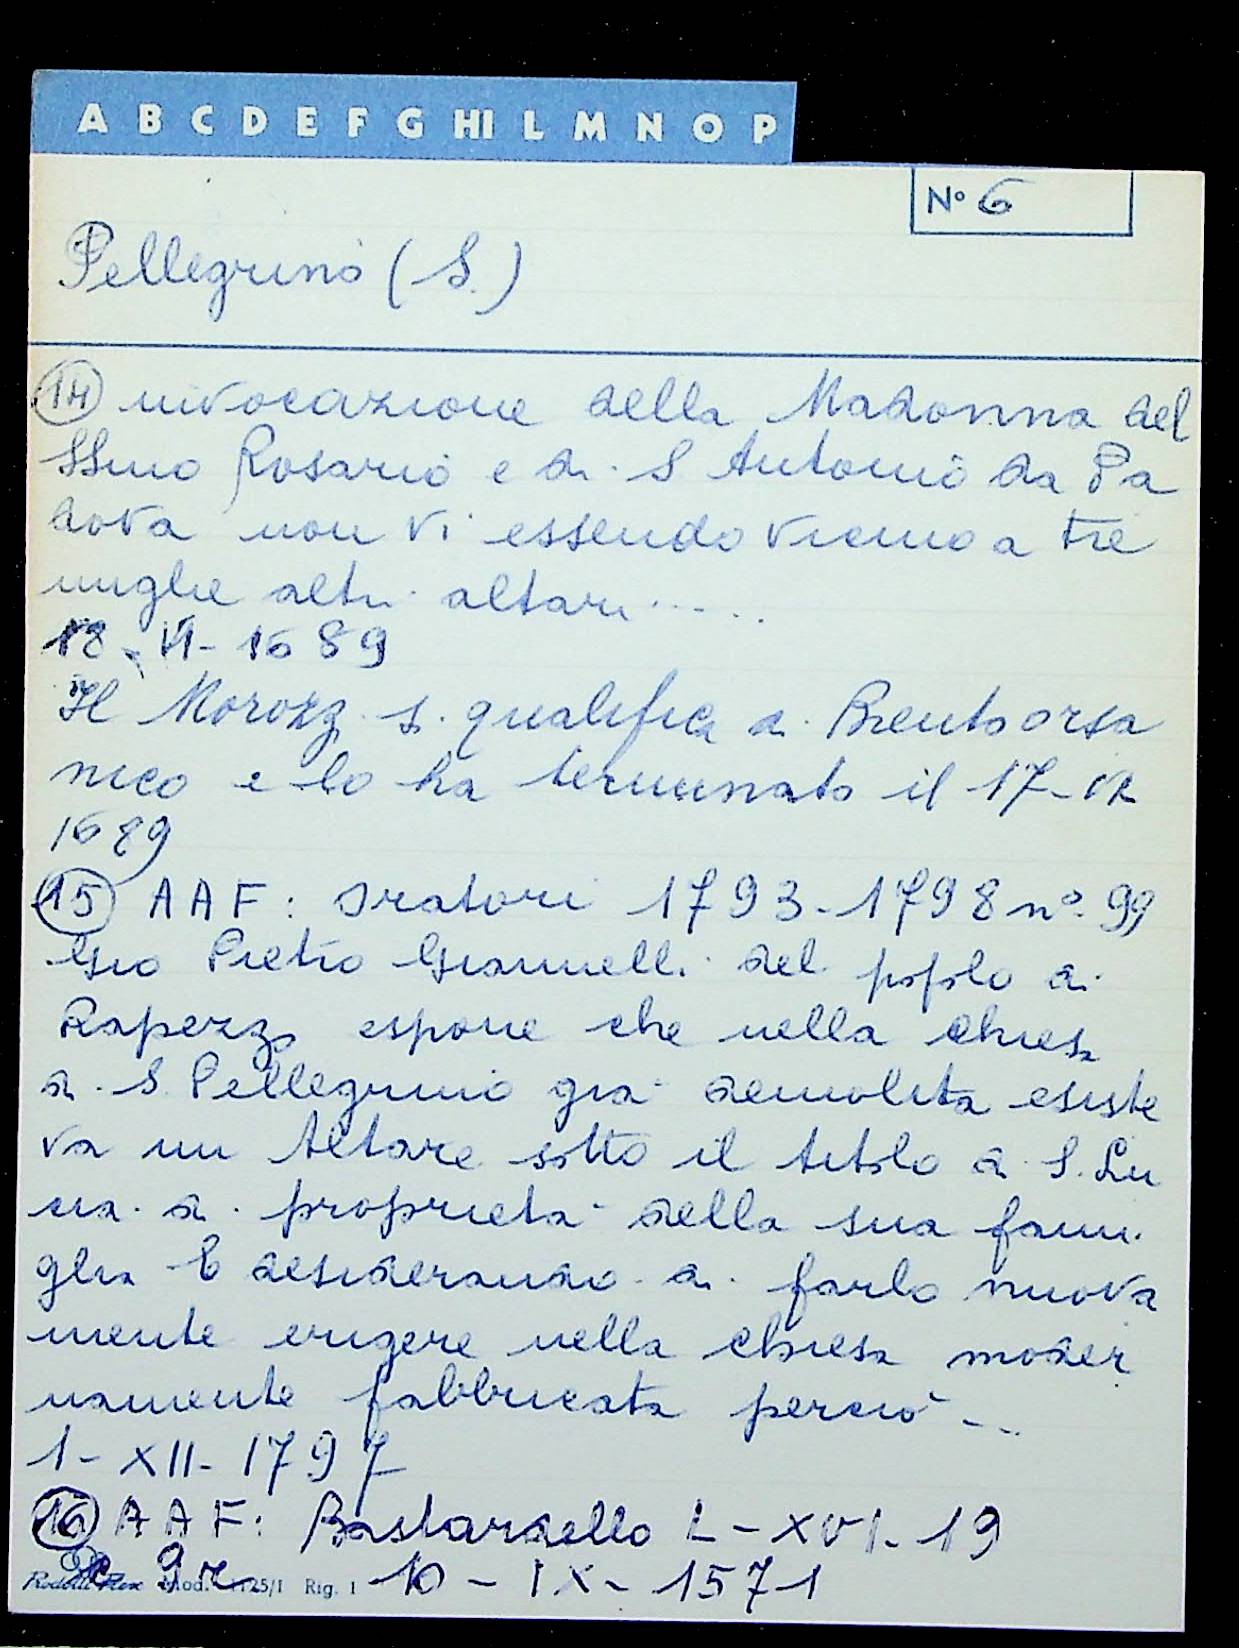 A B C D E F G HI L M N O P
N° 6
Pellegrino (S.)
14 invocazione della Madonna del
SSmo Rosario e di S Antonio da Pa
dova non vi essendo vicino a tre
miglie altri altari ....
18-VI-1689
Il Morozzi si qualifica di Brento orsa
nico e lo ha terminato il 17-VI
1689
15 AAF: Oratori 1793-1798 n° 99
Gio Pietro Giannelli del popolo di
Rapezzo espone che nella chiesa
di S. Pellegrino già demolita esiste
va un Altare sotto il titolo di S. Lu
cia di proprietà della sua fami
glia E desiderando di farlo nuova
mente erigere nella chiesa moder
namente fabbricata perciò ...
1-XII-1797
16 AAF: Bastardello L-XVI-19
c 9r 10-IX-1571
Mod. 1125/1 Rig. 1